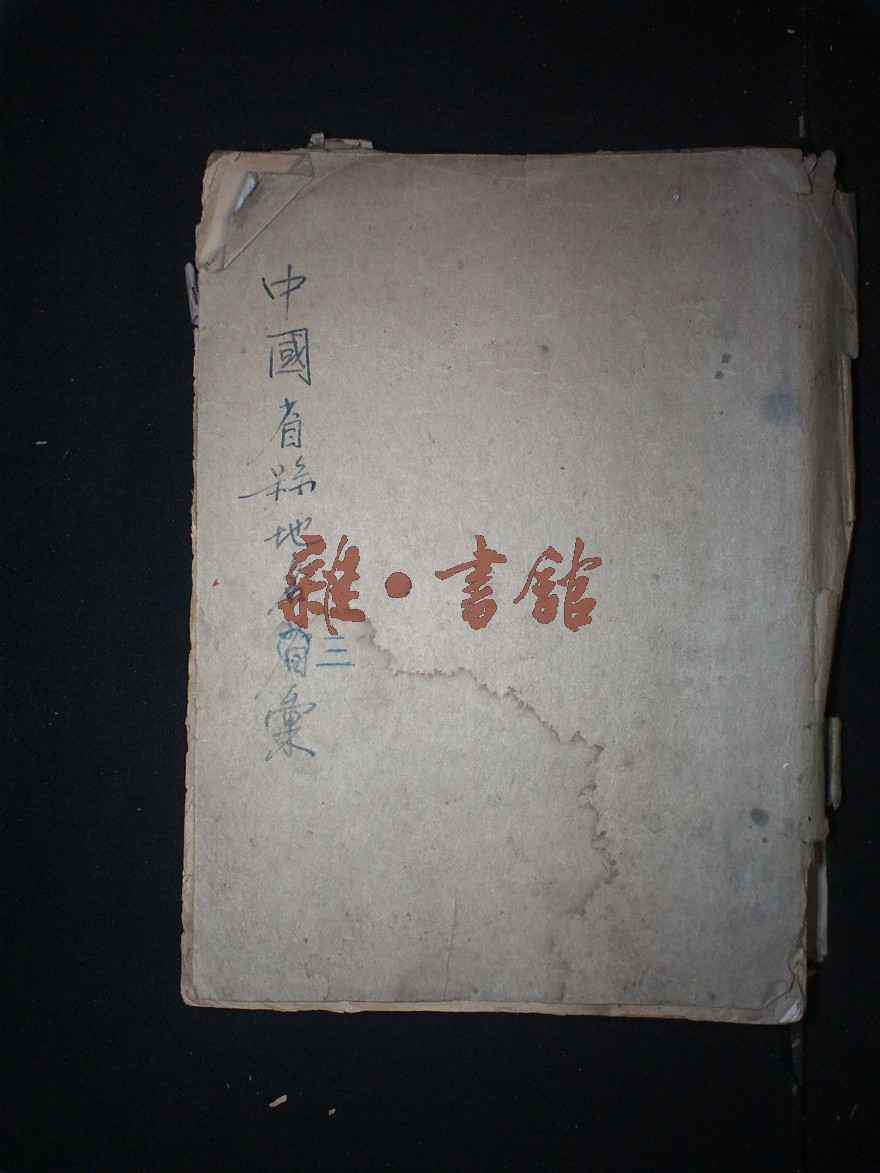 中國省縣地名三彙
雜·書館